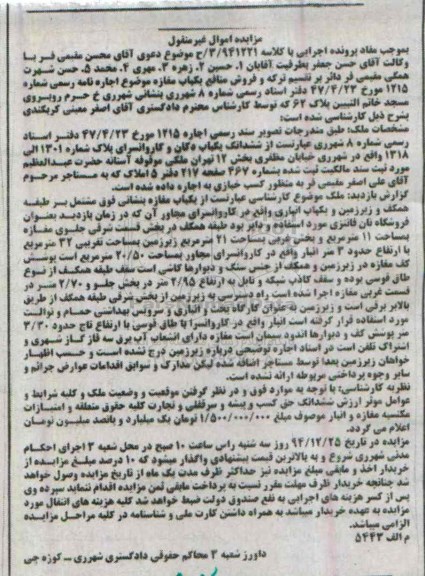 مزایده اموال غیرمنقول
بموجب مفاد پرونده اجرایی با کلاسه ۹۴۱۲۲۱/۳/ج موضوع دعوی آقای محسن مقیمی فر با
وکالت آقای حسن جعفر بطرفیت آقایان ۱. حسین ۲. زهره ۳. مهری ۴. محمد ۵. حسن شهرت
همگی مقیمی فر دائر بر تقسیم ترکه و فروش منافع یکباب مغازه موضوع اجاره نامه رسمی شماره
۱۲۱۵ مورخ ۴۷/۴/۲۳ دفتر اسناد رسمی شماره ۸ شهرری بنشانی شهرری خ حرم روبروی
مسجد خاتم النبیین پلاک ۶۲ که توسط کارشناس محترم دادگستری آقای اصغر معینی کربکندی
بشرح ذیل کارشناسی شده است:
مشخصات ملک: طبق مندرجات تصویر سند رسمی اجاره ۱۲۱۵ مورخ ۴۷/۴/۲۳ دفتر اسناد
رسمی شماره ۸ شهرری عبارتست از ششدانگ یکباب دکان و کاروانسرای پلاک شماره ۱۳۰۱ الی
۱۳۱۸ واقع در شهرری خیابان مظفری بخش ۱۲ تهران ملکی موقوفه آستانه حضرت عبدالعظیم
مورد ثبت سند مالکیت ثبت شده بشماره ۴۶۷ صفحه ۲۱۷ دفتر ۵ املاک که به مستاجر مرحوم
آقای علی اصغر مقیمی فر به منظور کسب خبازی به اجاره داده شده است.
گزارش بازدید: ملک موضوع کارشناسی عبارتست از یکباب مغازه بنشانی فوق مشتمل بر طبقه
همکف و زیرزمین و یکباب انباری واقع در کاروانسرای مجاور آن که در زمان بازدید بعنوان
فروشگاه نان فانتزی مورد استفاده و دایر بود طبقه همکف در بخش قسمت شرقی جلوی مغازه
بمساحت ۱۱ مترمربع و بخش غربی بمساحت ۲۱ مترمربع زیرزمین بمساحت تقریبی ۳۲ مترمربع
با ارتفاع حدود ۳ متر انبار واقع در کاروانسرای مجاور بمساحت ۲۰/۵۰ مترمربع است پوشش
کف مغازه در زیرزمین و همکف از جنس سنگ و دیوارها کاشی است سقف طبقه همکف از نوع
طاق قوسی بوده و سقف کاذب شبکه و تایل به ارتفاع ۲/۹۵ متر در بخش جلو و ۲/۷۰ متر در
قسمت غربی مغازه اجرا شده است راه دسترسی به زیرزمین از بخش شرقی طبقه همکف از طریق
بالابر برقی است و زیرزمین به عنوان کارگاه پخت و انباری و سرویس بهداشتی حمام و توالت
مورد استفاده قرار گرفته است انبار واقع در کاروانسرا با طاق قوسی با ارتفاع تاج حدود ۳/۳۰
متر پوشش کف و دیوارها اندود سیمان است مغازه دارای انشعاب آب برق سه فاز گاز شهری و
اشتراک تلفن است در اسناد اجاره توضیحی درباره زیرزمین درج نشده است و حسب اظهار
خواهان زیرزمین بعدا توسط مستاجر اضافه شده لیکن مدارک و سوابق اقدامات عوارض جرائم و
سایر وجوه پرداختی مربوطه ارائه نشده است.
نظریه کارشناسی: با توجه به موارد فوق و در نظر گرفتن موقعیت و وضعیت ملک و کلیه شرایط و
عوامل موثر ارزش ششدانگ حق کسب و پیشه و سرقفلی و تجارت کلیه حقوق متعلقه و امتیازات
مکتسبه مغازه و انبار موصوف مبلغ ۱/۵۰۰/۰۰۰/۰۰۰ تومان یک میلیارد و پانصد میلیون تومان
اعلام می گردد.
مزایده در تاریخ ۹۴/۱۲/۲۵ روز سه شنبه راس ساعت ۱۰ صبح در محل شعبه ۳ اجرای احکام
مدنی شهرری شروع و به بالاترین قیمت پیشنهادی واگذار میشود که ۱۰ درصد مبلغ مزایده از
خریدار اخذ و مابقی مبلغ مزایده نیز حداکثر ظرف مدت یک ماه از تاریخ مزایده وصول خواهد
شد چنانچه خریدار ظرف مهلت مقرر نسبت به پرداخت مابقی ثمن مزایده اقدام ننماید سپرده وی
پس از کسر هزینه های اجرایی به نفع صندوق دولت ضبط خواهد شد کلیه هزینه های انتقال مورد
مزایده به عهده خریدار میباشد به همراه داشتن کارت ملی و شناسنامه در کلیه مراحل مزایده
الزامی میباشد.
م الف ۵۴۴۳
داورز شعبه ۳ محاکم حقوقی دادگستری شهرری ــ کوزه چی